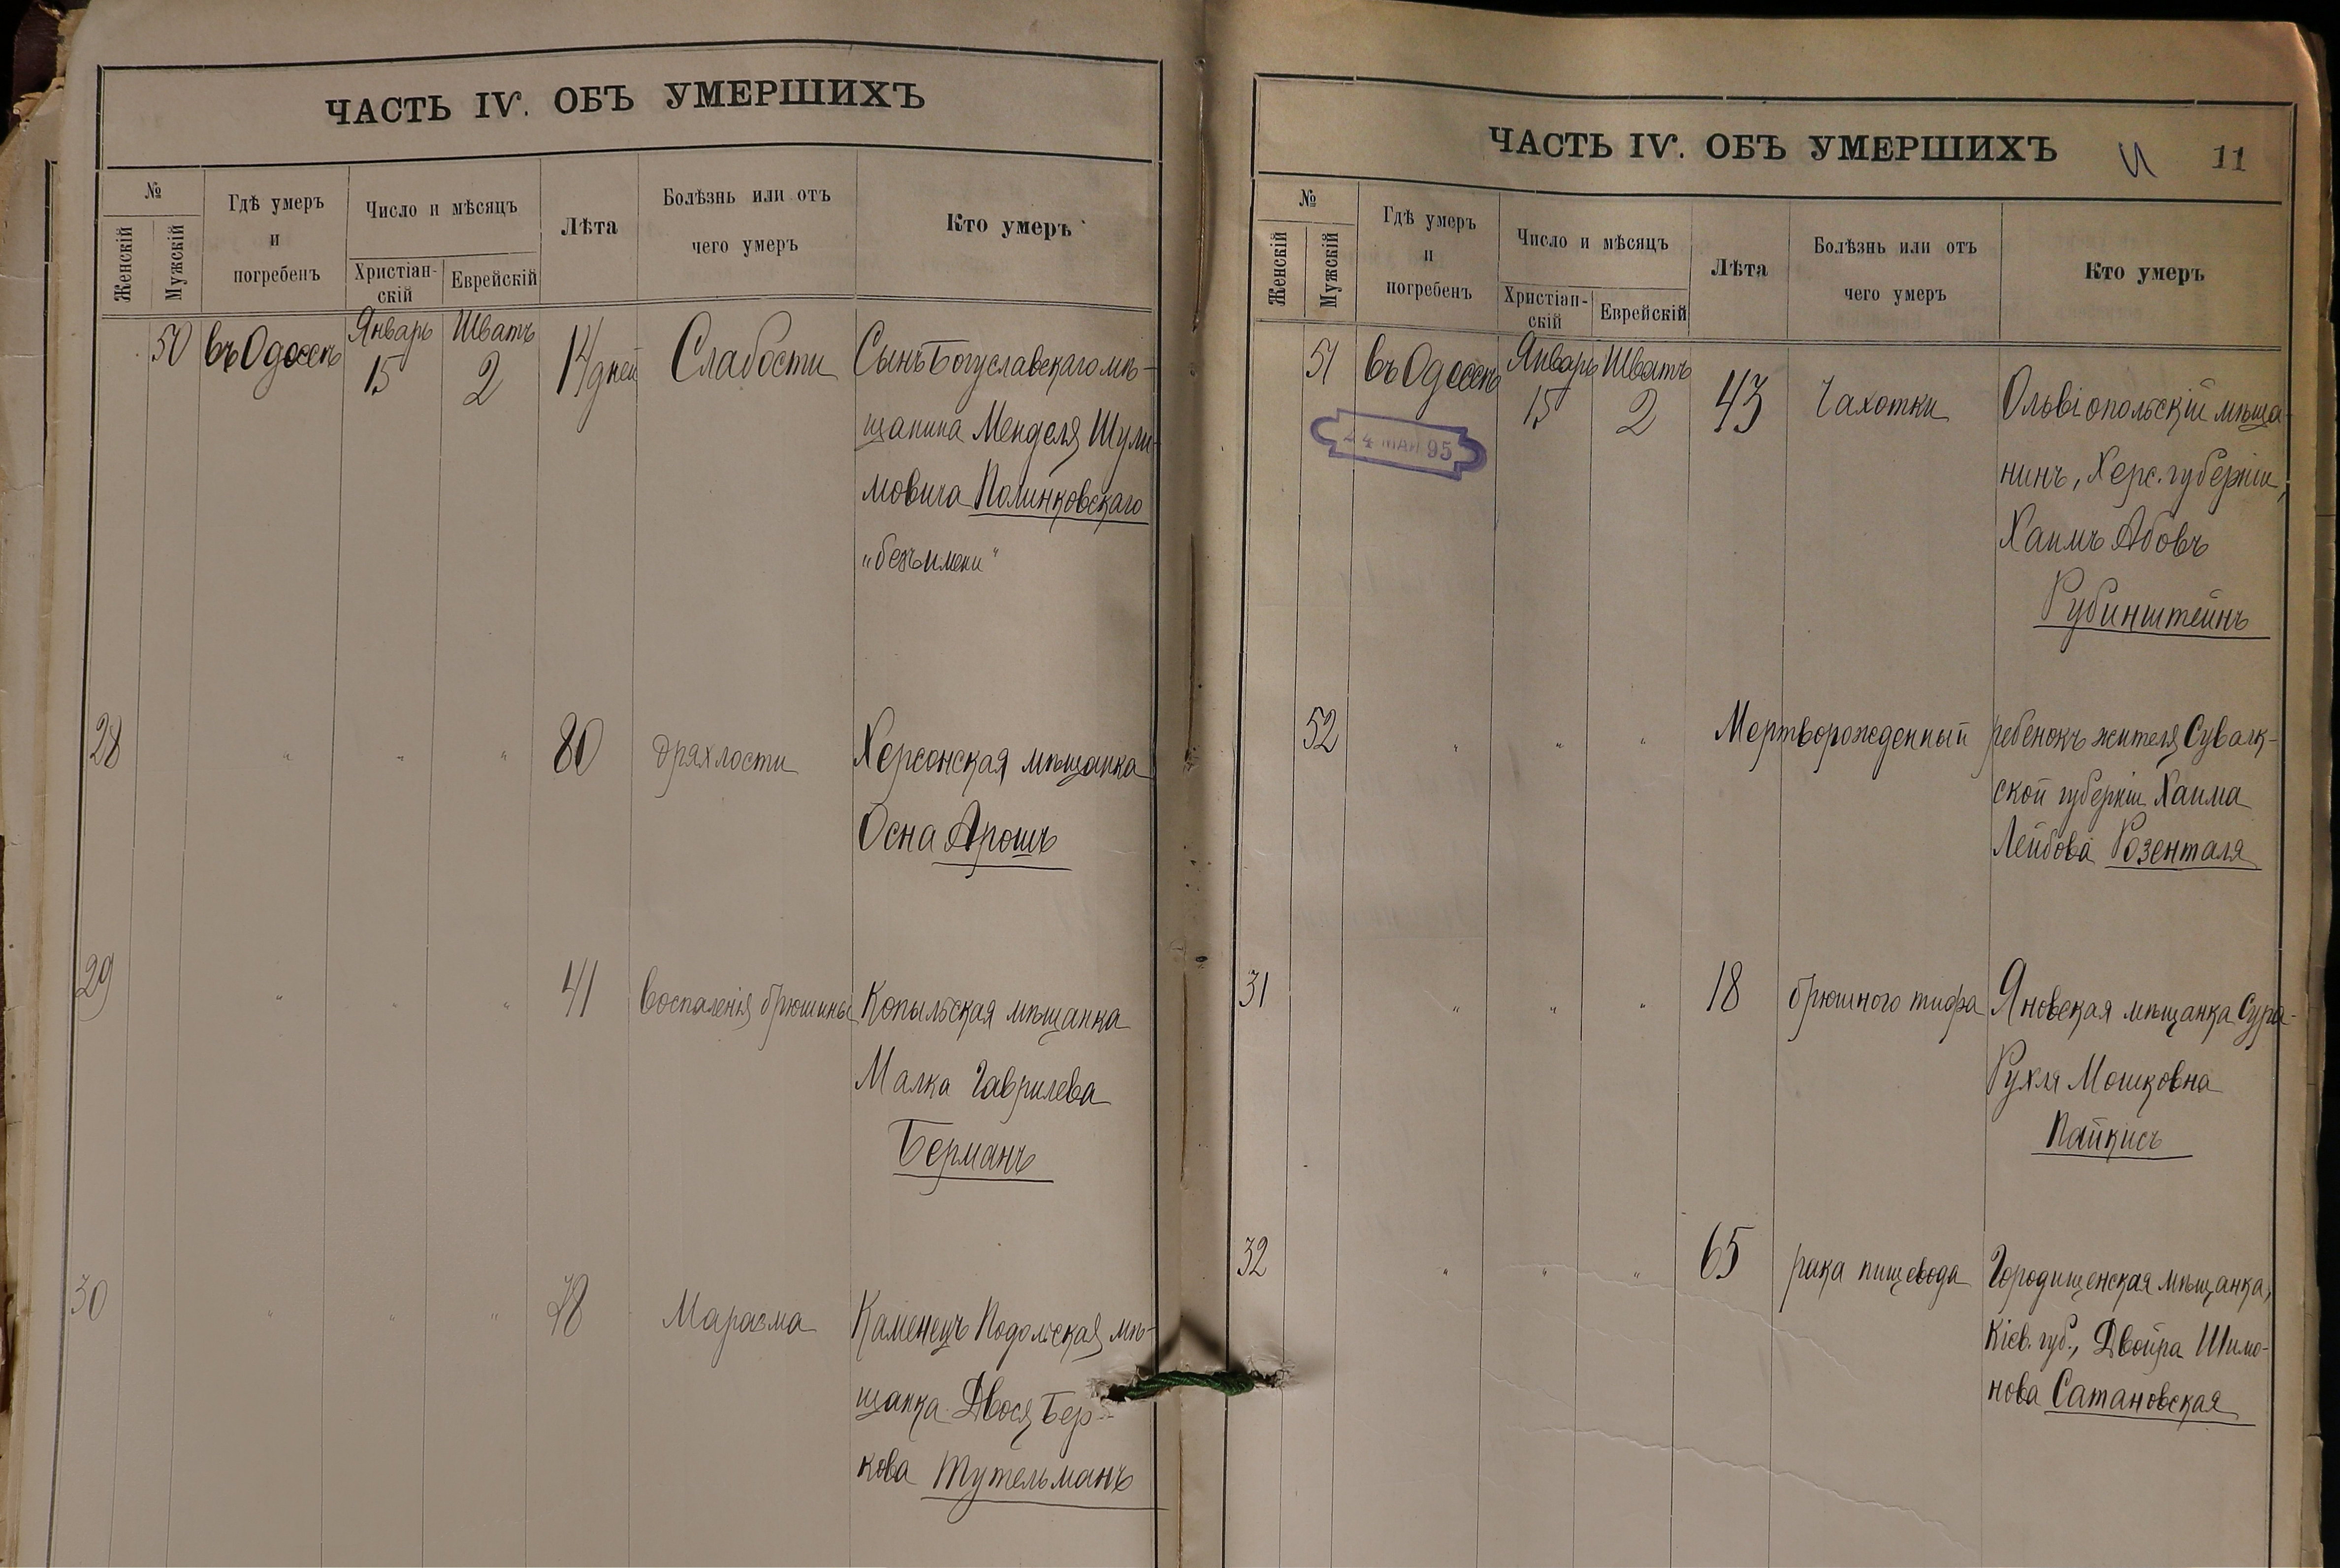 ЧАСТЬ IV. ОБЪ УМЕРШИХЪ
№
Женскій
Мужскій
Гдѣ умеръ
и
погребенъ
Число и мѣсяцъ
Христіан-
скій
Еврейскій
Лѣта
Болѣзнь или отъ
чего умеръ
Кто умеръ
50 въ Одессѣ Январь 15 Шватъ 2 14 дней Слабости Сынъ Богуславскаго мѣ-
щанина Менделя Шули-
мовича Полинковскаго
"безъ имени"
28 " " " 80 дряхлости Херсонская мѣщанка
Осна Арошъ
29 " " " 41 воспаленія брюшины Копыльская мѣщанка
Малка Гаврилева
Берманъ
30 " " " 78 Маразма Каменецъ Подольская мѣ-
щанка Двося Бер-
кова Тутельманъ
ЧАСТЬ IV. ОБЪ УМЕРШИХЪ
11
№
Женскій
Мужскій
Гдѣ умеръ
и
погребенъ
Число и мѣсяцъ
Христіан-
скій
Еврейскій
Лѣта
Болѣзнь или отъ
чего умеръ
Кто умеръ
51 въ Одессѣ Январь 15 Шватъ 2 43 Чахотки Ольвіопольскій мѣща-
нинъ, Херс. губерніи,
Хаимъ Абовъ
Рубинштейнъ
24 МАЙ 95
52 " " " Мертворожденный ребенокъ жителя Сувалк-
ской губерніи Хаима
Лейбова Розенталя
31 " " " 18 брюшного тифа Яновская мѣщанка Сура-
Рухля Мошковна
Пайкисъ
32 " " " 65 рака пищевода Городищенская мѣщанка,
Кіев. губ., Двойра Шимо-
нова Сатановская